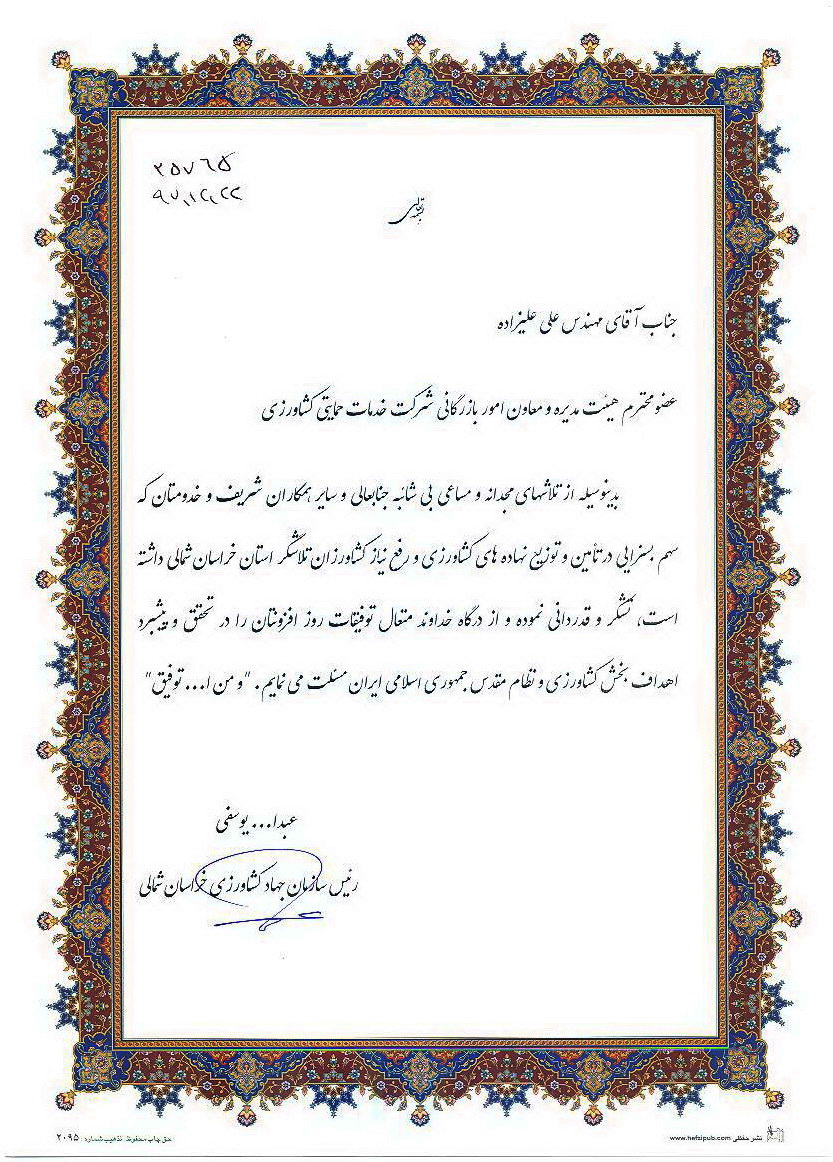 ۲۵۷۶۵
۹۷،۱۲،۲۲
بسمه تعالی
جناب آقای مهندس علی علیزاده
عضو محترم هیئت مدیره و معاون امور بازرگانی شرکت خدمات حمایتی کشاورزی
بدینوسیله از تلاشهای مجدانه و مساعی بی شائبه جنابعالی و سایر همکاران شریف و خدومتان که
سهم بسزایی در تأمین و توزیع نهاده های کشاورزی و رفع نیاز کشاورزان تلاشگر استان خراسان شمالی داشته
است، تشکر و قدردانی نموده و از درگاه خداوند متعال توفیقات روز افزونتان را در تحقق و پیشبرد
اهداف بخش کشاورزی و نظام مقدس جمهوری اسلامی ایران مسئلت می نمایم. "و من ا... توفیق"
عبدا... یوسفی
رئیس سازمان جهاد کشاورزی خراسان شمالی
نشر حفظی www.hefzipub.com
حق چاپ محفوظ تذهیب شماره: ۲۰۹۵